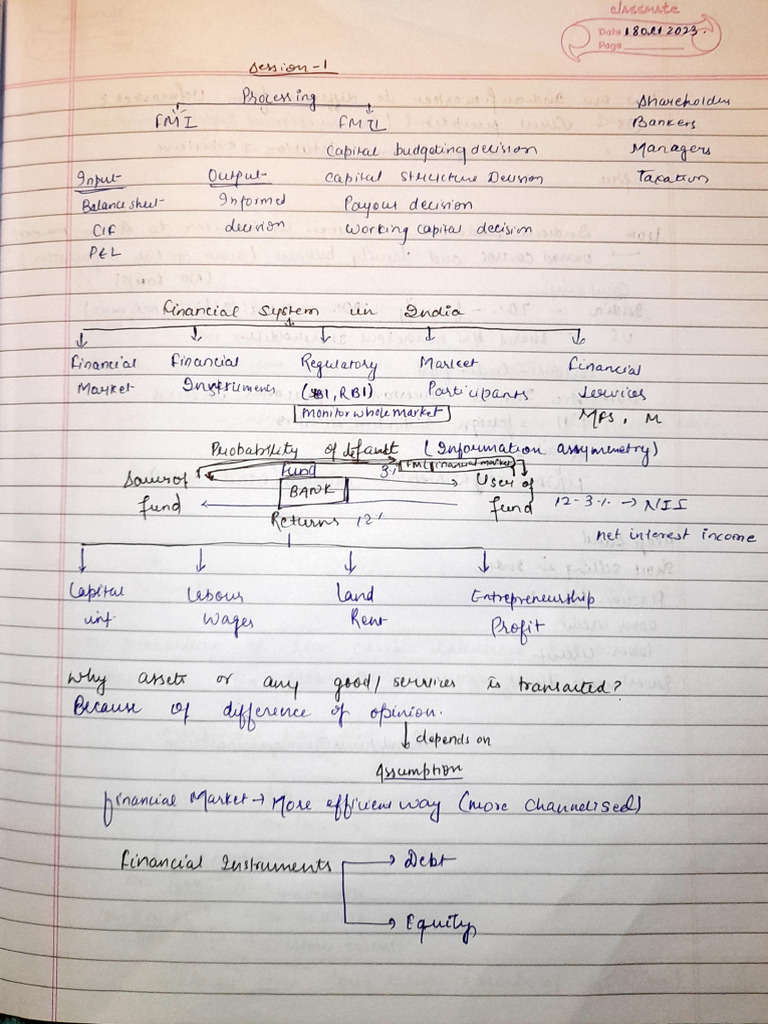 classmate
Date 18 Oct 2023.
Page
Session-1
Processing
FMI FMII
Shareholders
Bankers
Managers
Taxation
Capital budgeting decision
Capital Structure Decision
Payout decision
Working capital decision
Input Output
Balance sheet Informed
CIF decision
P&L
Financial system in India
Financial Financial Regulatory Market Financial
Market Instruments (SBI, RBI) Participants Services
Monitor whole market MFs, M
Probability of default (Information assymetry)
Fund 3% FML financial market
Source of BANK User of
fund fund 12-3% → NII
Returns 12% net interest income
Capital Labour Land Entrepreneurship
int. Wages Rent Profit
Why assets or any good/services is transacted?
Because of difference of opinion.
depends on
Assumption
Financial Market → More efficient way (more channelised)
Financial Instruments → Debt
→ Equity